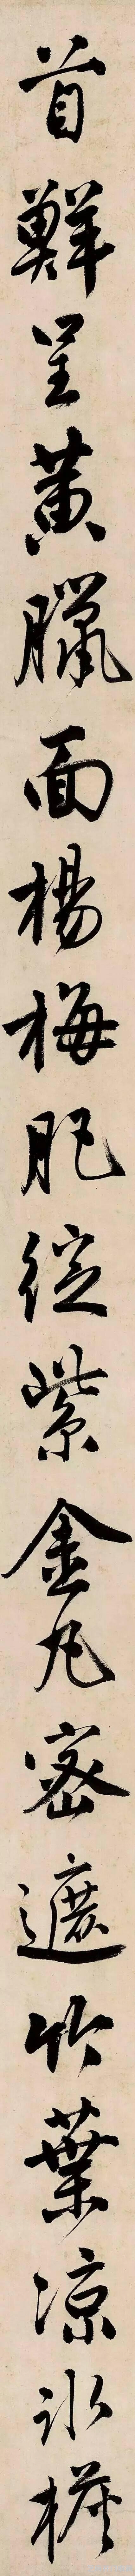 首鮮呈黃臘面楊梅肥綻紫金丸密遮竹葉涼冰